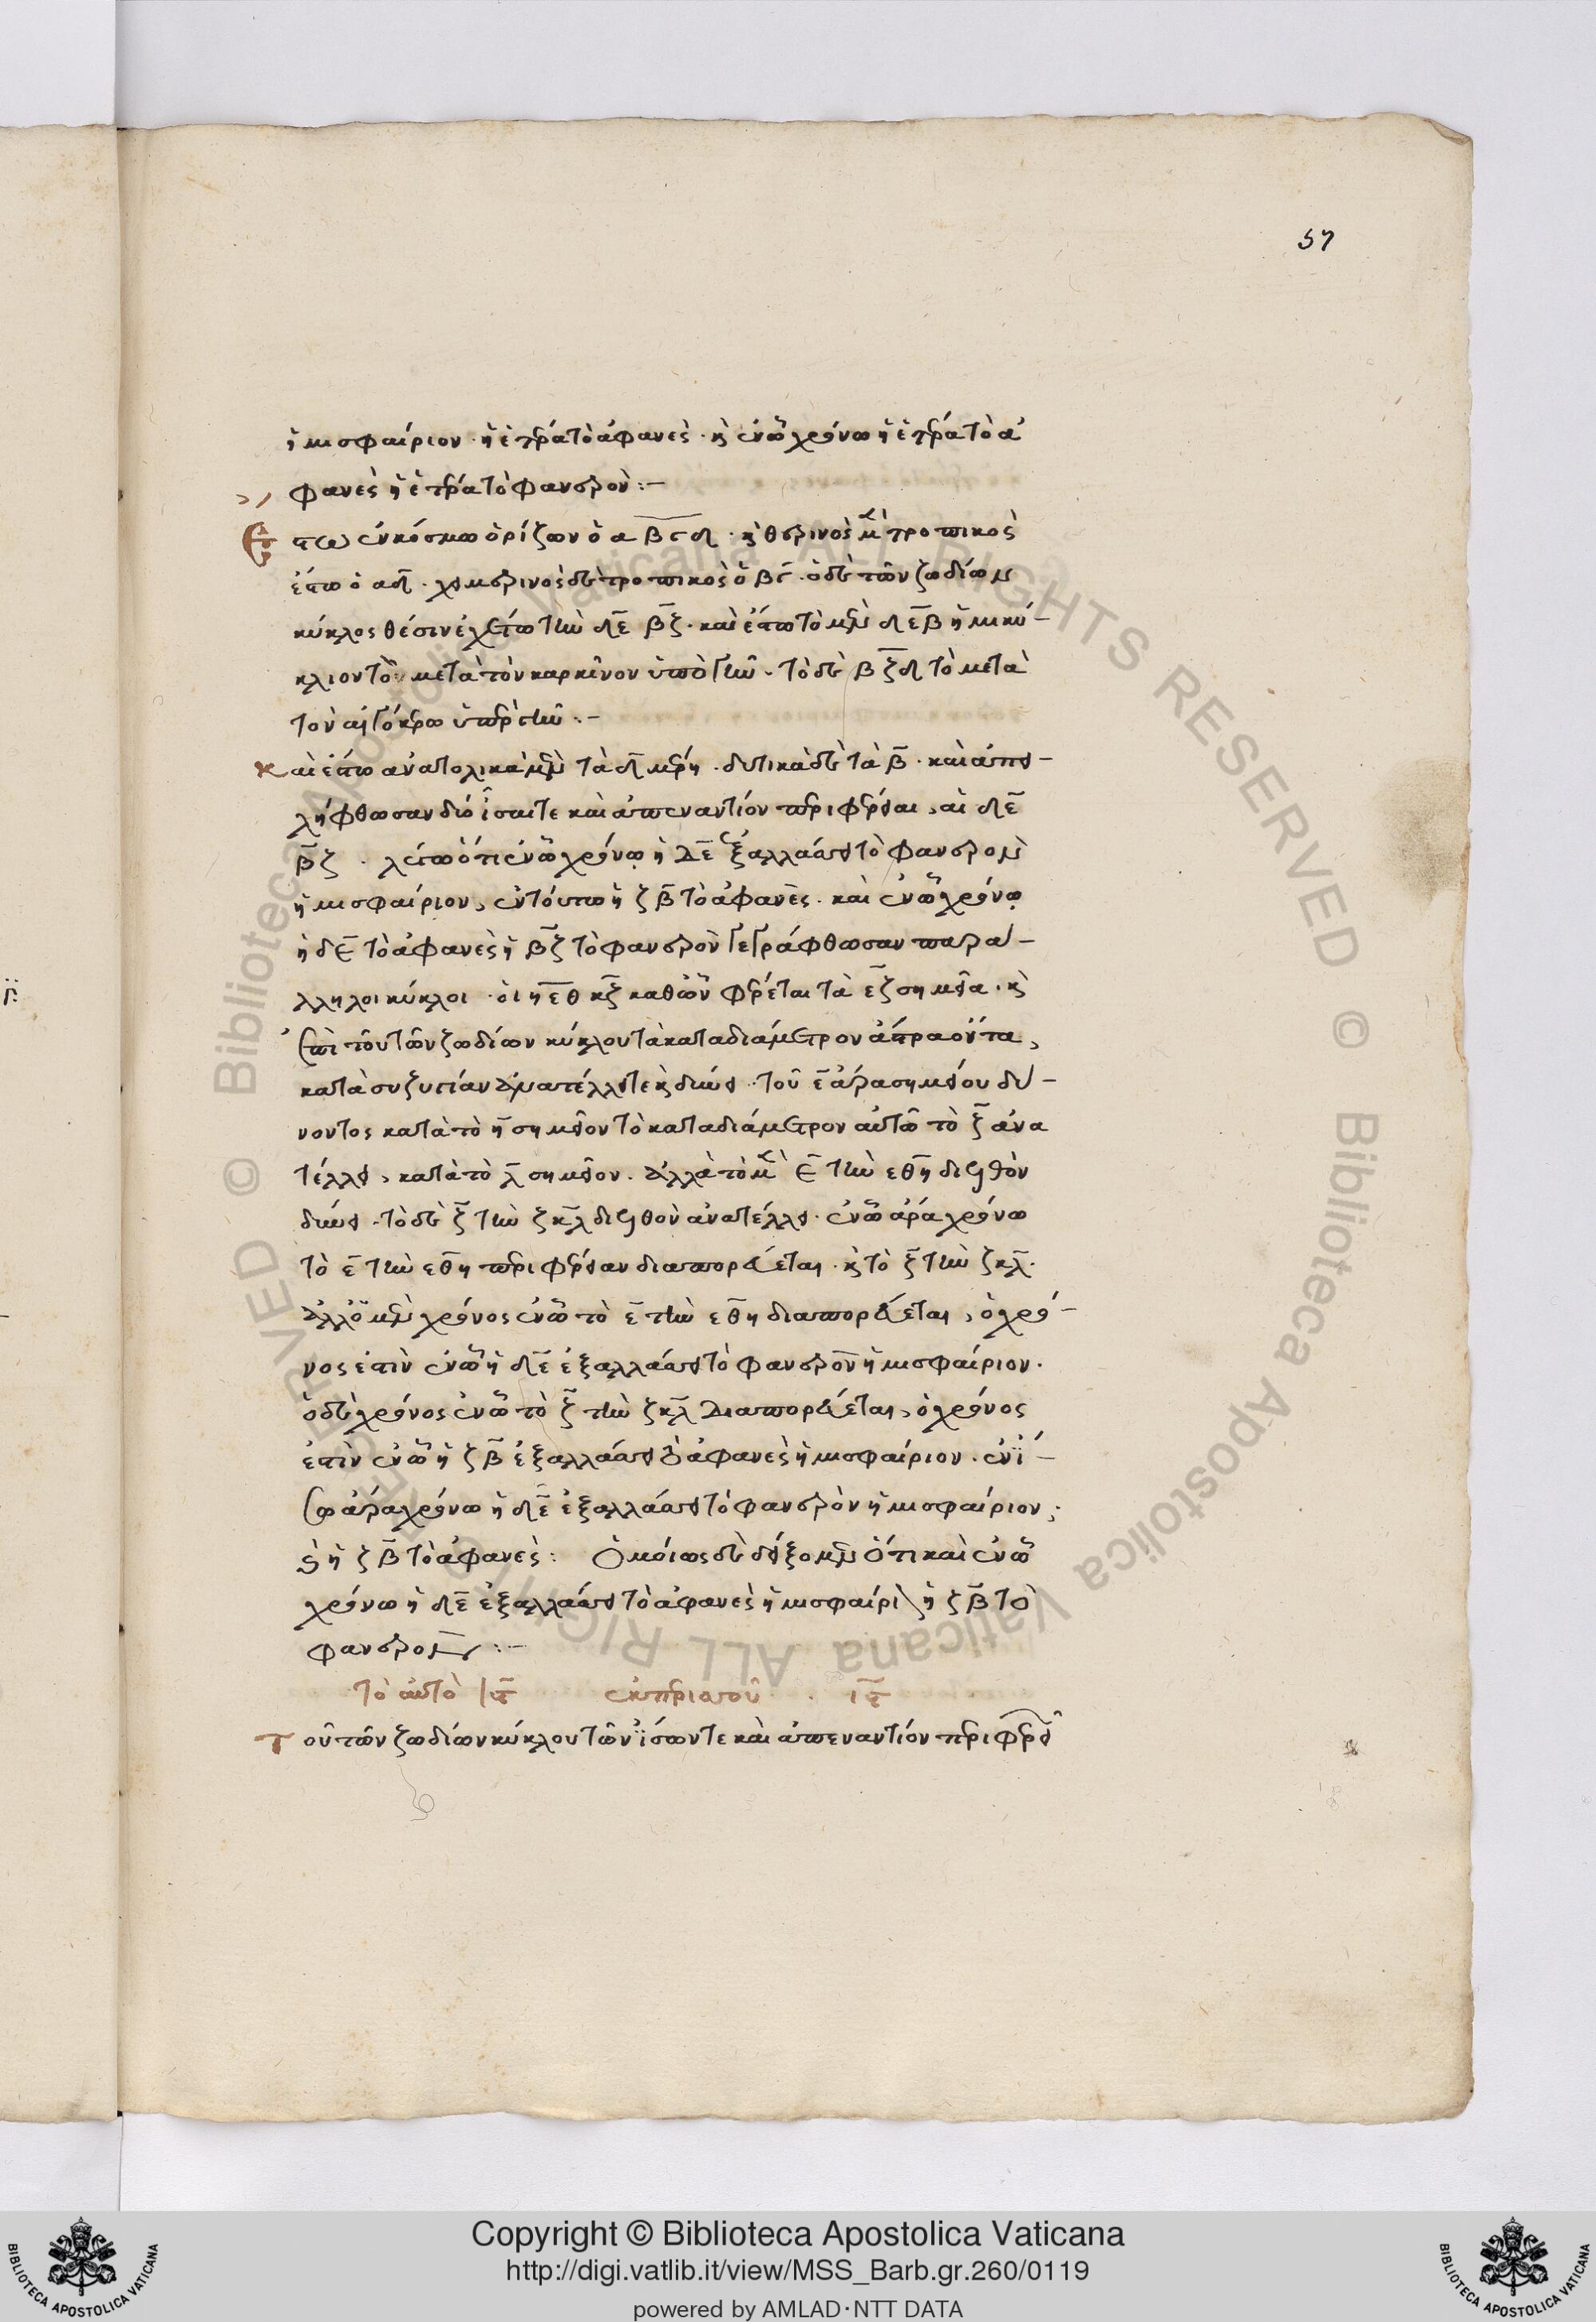 57
ἡμισφαίριον · ἡ ἑτέρα τὸ ἀφανὲς · κ̀ ἐν ὧ χρόνω ἡ ἑτέρα τὸ ἀ
φανὲς ἡ ἑτέρα τὸ φανερὸν :–
Ἔστω ἐν κόσμω ὁρίζων ὁ αβγδ · κ̀ θερινὸς μὲν τροπικὸς
ἔστω ὁ αδ · χειμερινὸς δὲ τροπικὸς ὁ βγ · ὁ δὲ τῶν ζωδίων
κύκλος θέσιν ἐχέτω τὴν δε βζ · καὶ ἔστω τὸ μὲν δεβ ἡμικύ–
κλιον τὸ μετὰ τὸν καρκῖνον ὑπὸ γῆν · τὸ δὲ βζδ τὸ μετὰ
τὸν αἰγόκρω ὑπὲρ γῆν :–
καὶ ἔστω ἀνατολικὰ μὲν τὰ δ μέρη · δυτικὰ δὲ τὰ β · καὶ ἀπει–
λήφθωσαν δύο ἴσαι τε καὶ ἀπεναντίον περιφέρειαι, αἱ δε
βζ · λέγω ὅτι ἐν ὧ χρόνῳ ἡ δε ἐξαλλάσσει τὸ φανερὸν
ἡμισφαίριον, ἐν τούτω ἡ ζβ τὸ ἀφανὲς · καὶ ἐν ὧ χρόνῳ
ἡ δε τὸ ἀφανὲς ἡ βζ τὸ φανερὸν γεγράφθωσαν παρά–
λληλοι κύκλοι · οἱ ηεθ κζ καθ ὧν φέρεται τὰ εζ σημεῖα · κ̀
ἐπὶ τοῦ τῶν ζωδίων κύκλου τὰ κατὰ διάμετρον ἄστρα ὄντα,
κατὰ συζυγίαν ἀνατέλλει τε κ̀ δύνει · τοῦ ε ἄρα σημείου δύ–
νοντος κατὰ τὸ η σημεῖον τὸ κατὰ διάμετρον αὐτῶ τὸ ζ ἀνα
τέλλει, κατὰ τὸ λ σημεῖον · ἀλλὰ τὸ μὲν ε τὴν εθη διελθὸν
δύνει · τὸ δὲ ζ τὴν ζκλ διελθὸν ἀνατέλλει · ἐν ὧ ἄρα χρόνω
τὸ ε τὴν εθη περιφέρειαν διαπορεύεται · κ̀ τὸ ζ τὴν ζκλ ·
ἀλλ ὁ μὲν χρόνος ἐν ὧ τὸ ε τὴν εθη διαπορεύεται, ὁ χρό–
νος ἐστὶν ἐν ὧ ἡ δε ἐξαλλάσσει τὸ φανερὸν ἡμισφαίριον ·
ὁ δὲ χρόνος ἐν ὧ τὸ ζ τὴν ζκλ διαπορεύεται, ὁ χρόνος
ἐστὶν ἐν ὧ ἡ ζβ ἐξαλλάσσει τὸ ἀφανὲς ἡμισφαίριον · ἐν ἴ–
σω ἄρα χρόνω ἡ δε ἐξαλλάσσει τὸ φανερὸν ἡμισφαίριον ;
κ̀ ἡ ζβ τὸ ἀφανὲς : Ὁμοίως δὲ δείξομεν ὅτι καὶ ἐν ὧ
χρόνω ἡ δε ἐξαλλάσσει τὸ ἀφανὲς ἡμισφαίρι ἡ ζβ τὸ
φανερον :–
τοῦ τῶν ζωδίων κύκλου τῶν ἴσων τε καὶ ἀπεναντίον περιφερει
Copyright © Biblioteca Apostolica Vaticana
http://digi.vatlib.it/view/MSS_Barb.gr.260/0119
powered by AMLAD·NTT DATA